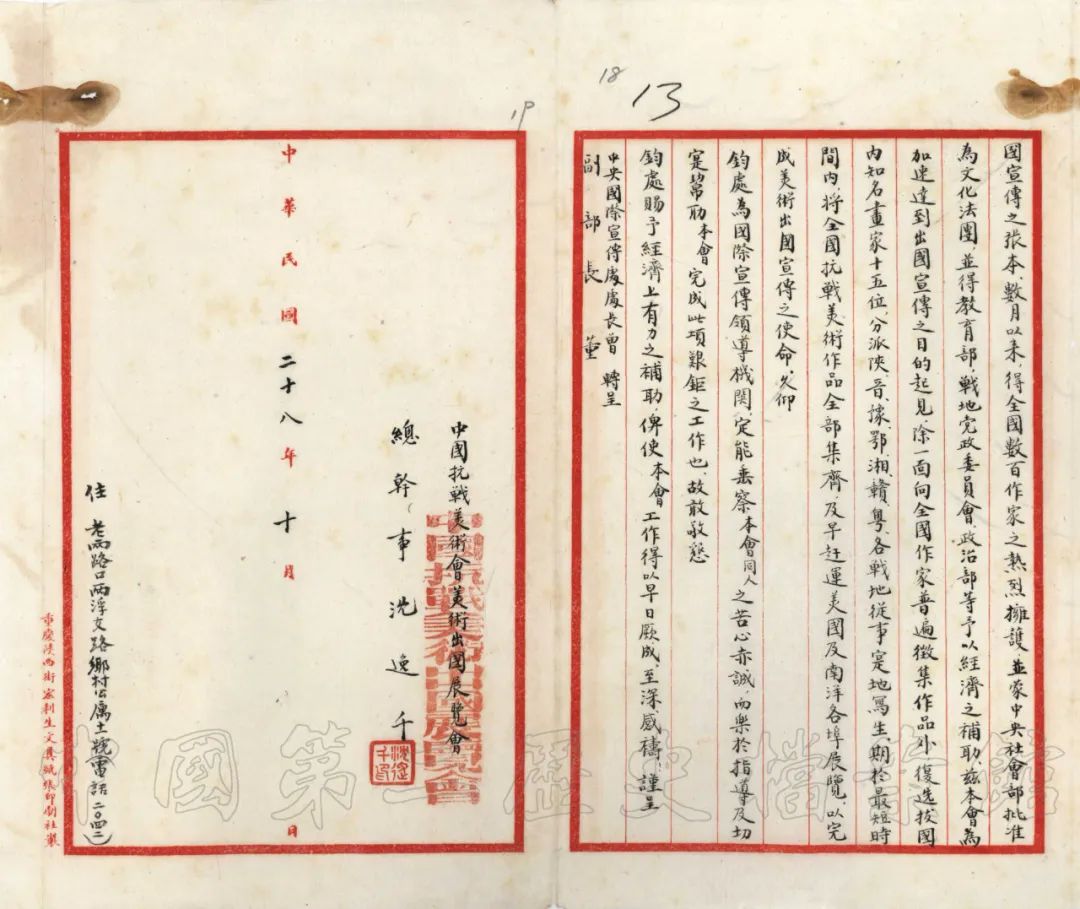 18
13
國宣傳之張本、數月以來、得全國數百作家之熱烈擁護、並蒙中央社會部批准
為文化法團、並得教育部、戰地党政委員會、政治部等予以經濟之補助、茲本會為
加速達到出國宣傳之目的起見、除一面向全國作家普遍徵集作品外、復選拔國
內知名畫家十五位、分派陝、晉、豫、鄂、湘、贛、粵、各戰地從事寔地寫生、期於最短時
間內、將全國抗戰美術作品全部集齊、及早赶運美國及南洋各埠展覽、以完
成美術出國宣傳之使命、久仰
鈞處為國際宣傳領導機関、定能垂察本會同人之苦心赤誠、而樂於指導及切
寔幫助本會完成此項艱鉅之工作也、故敢敬懇
鈞處賜予經濟上有力之補助、俾使本會工作得以早日厥成、至深感禱、謹呈
中央國際宣傳處處長曾 轉呈
副部長 董
19
中國抗戰美術會美術出國展覽會
總幹事 沈逸千
沈逸千印
中華民國二十八年十月 日
住 老兩路口兩浮支路鄉村公寓土號電話二〇四二
重慶陝西街家利生文具號張印刷社製
中國第二歷史檔案館